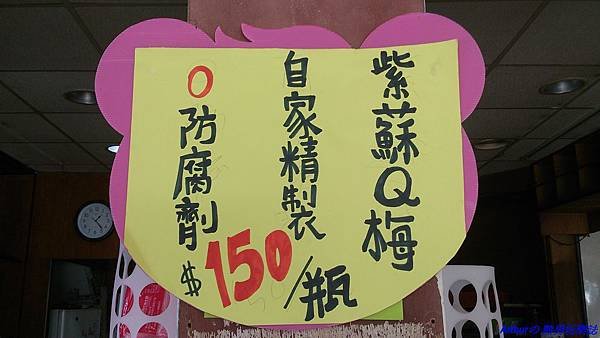 紫蘇Q梅
自家精製
0防腐劑
$150/瓶